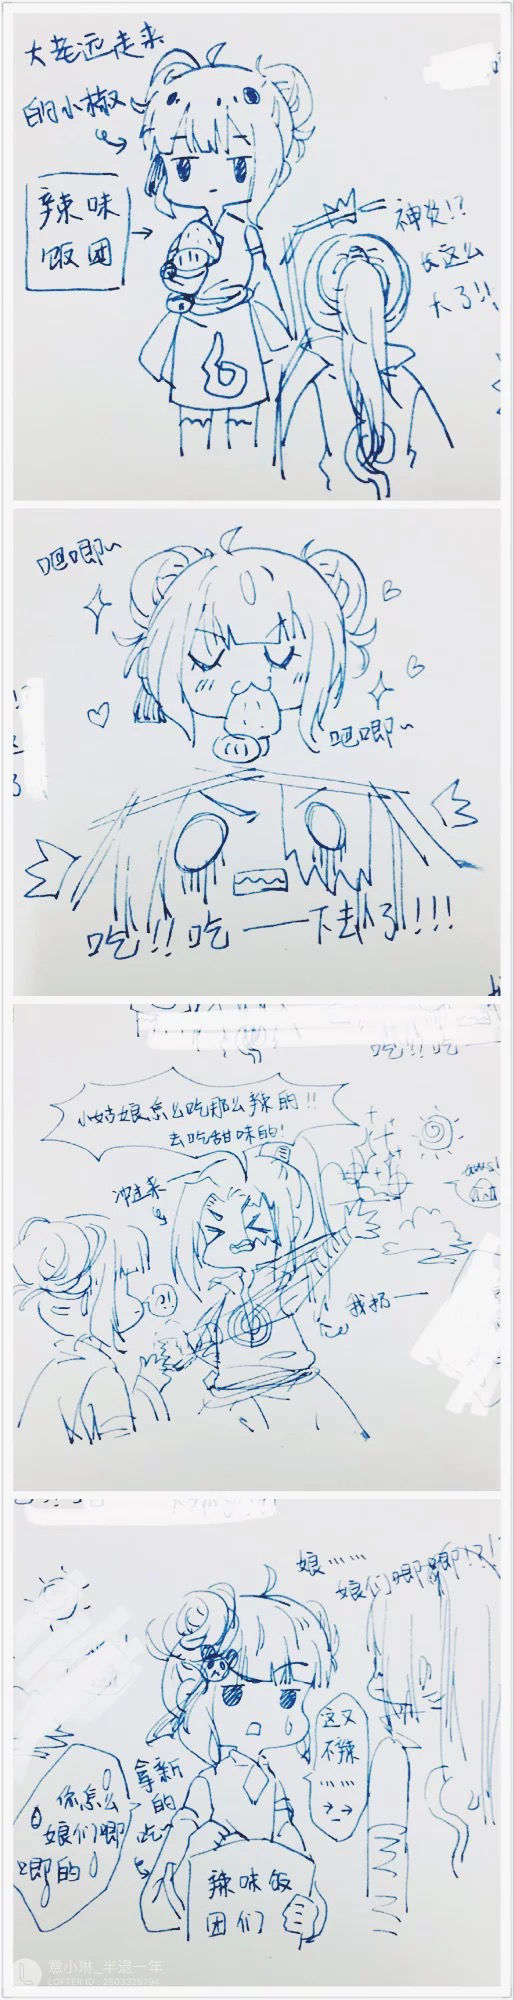 大老远走来
的小椒
辣味
饭团
神炎!?
长这么
大了!!
吧唧~
吧唧~
吃!!吃——下去了!!!
吃!!吃一
小姑娘怎么吃那么辣的!!
去吃甜味的!
冲过来
?!
我扔一
娘……
娘们唧唧!?!
这又
不辣
……
→_→
拿新
的
吃
你怎么
娘们唧
唧的
辣味饭
团们
意小琳_半退一年
LOFTER ID: 2503325794